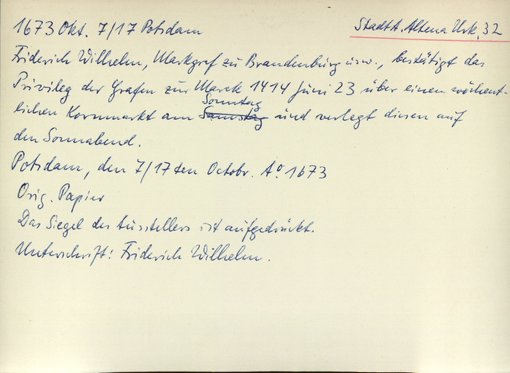 1673 Okt. 7/17 Potsdam StadtA. Altena Urk. 32
Friderich Wilhelm, Markgraf zu Brandenburg usw., bestätigt das
Privileg der Grafen zur Marck 1414 Juni 23 über einen wöchent-
Sonntag
lichen Kornmarkt am Samstag und verlegt diesen auf
den Sonnabend.
Potsdam, den 7/17ten Octobr. Ao 1673
Orig. Papier
Das Siegel des Ausstellers ist aufgedrückt.
Unterschrift: Friderich Wilhelm.